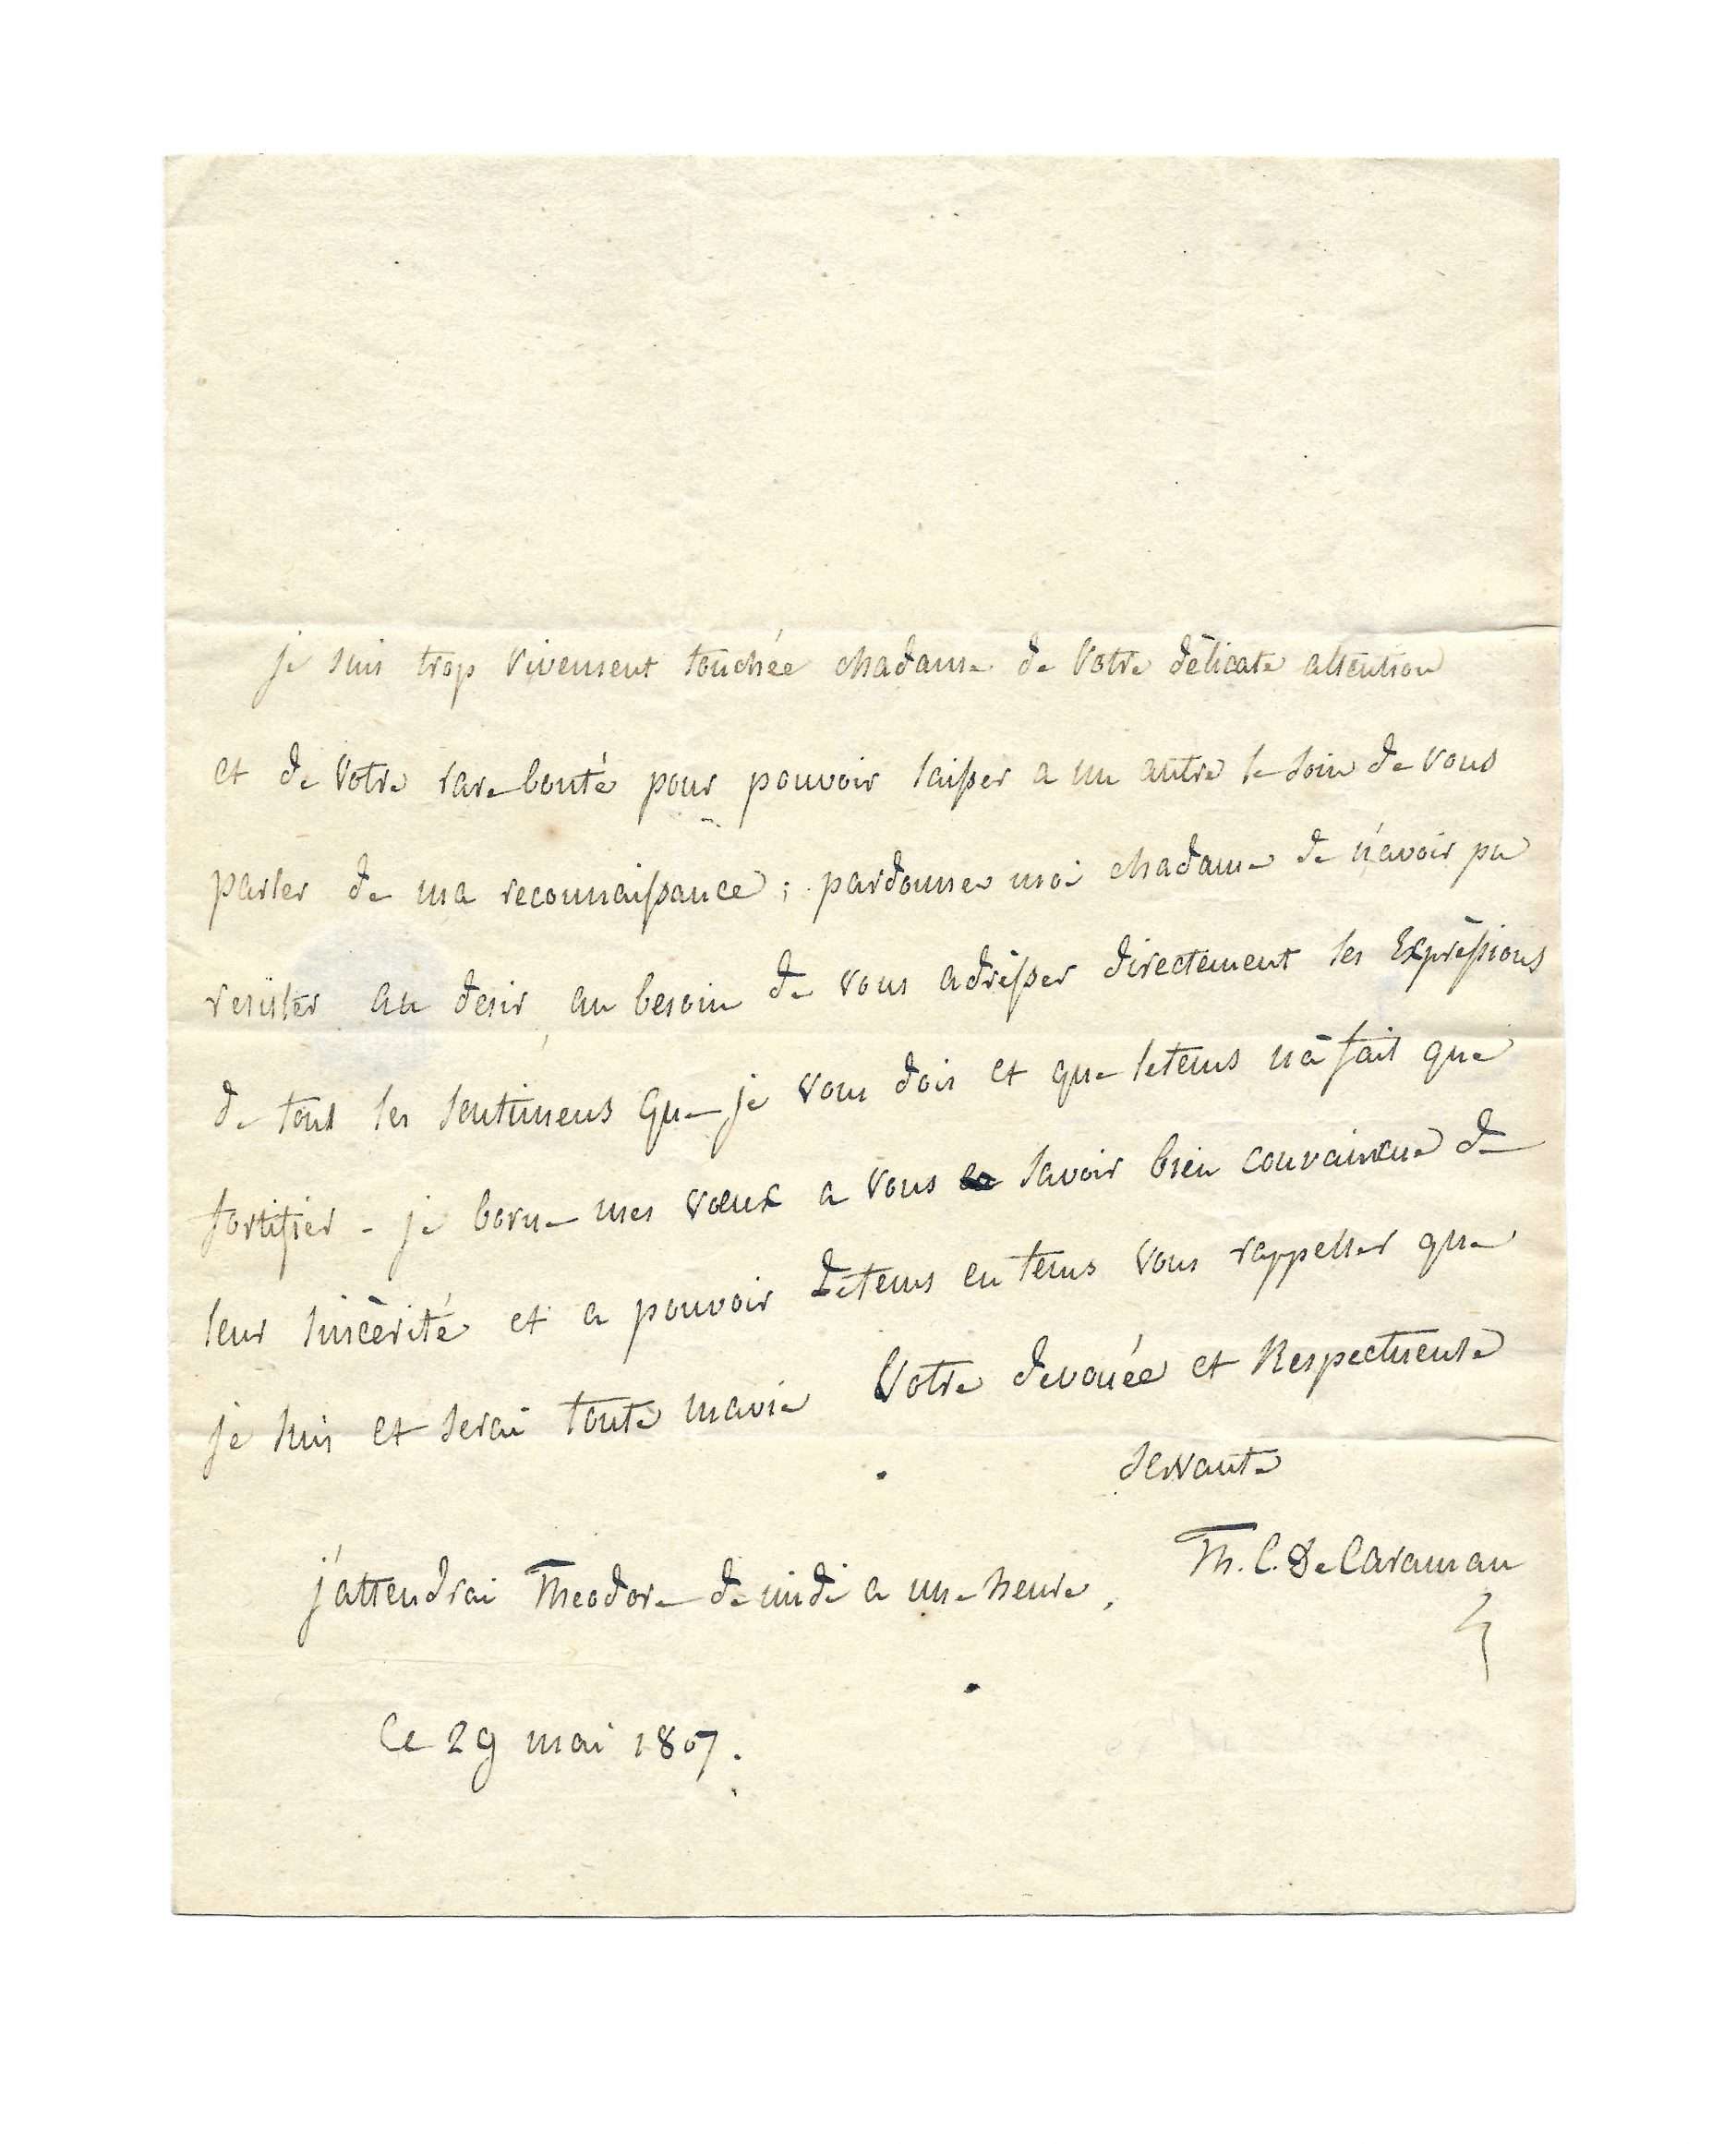 je suis trop vivement touchée Madame de votre délicate attention
et de votre rare bonté pour pouvoir laisser a un autre le soin de vous
parler de ma reconnaissance ; pardonnez moi Madame de n'avoir pu
resister au desir, au besoin de vous adrèsser directement les Exprèssions
de tous les sentimens que je vous dois et que le tems n'a fait que
fortifier - je borne mes vœux a vous savoir bien convaincue de
leur sincèrité et a pouvoir de tems en tems vous rappeller que
je suis et serai toute ma vie Votre devouée et Respectueuse
servante
Th. C. De Caraman
j'attendrai Theodore de midi a une heure,
Ce 29 mai 1807.